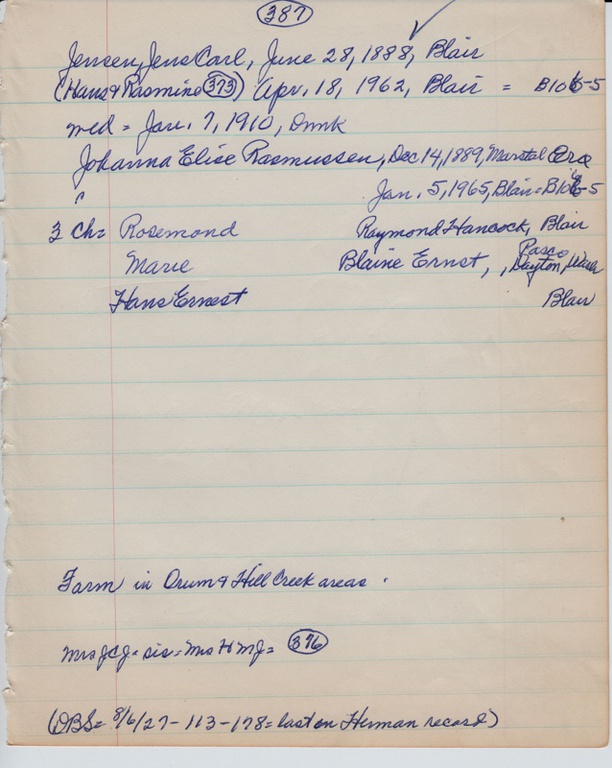 387
Jensen, Jens Carl, June 28, 1888, Blair
(Hans & Rasmine 373) Apr. 18, 1962, Blair = B106-5
med = Jan. 7, 1910, Dnmk
Johanna Elise Rasmussen, Dec 14, 1889, Marstal Ærø
Jan. 5, 1965, Blair = B106-5
3 Ch = Rosemond Raymond Hancock, Blair
Pasco
Marie Blaine Ernst, , Dayton, Wash
Hans Ernest Blair
Farm in Orum & Hill Creek areas.
mrs JCJ = sis = Mrs H MJ = 376
(OBS = 8/6/27-113-178 = last on Herman record)